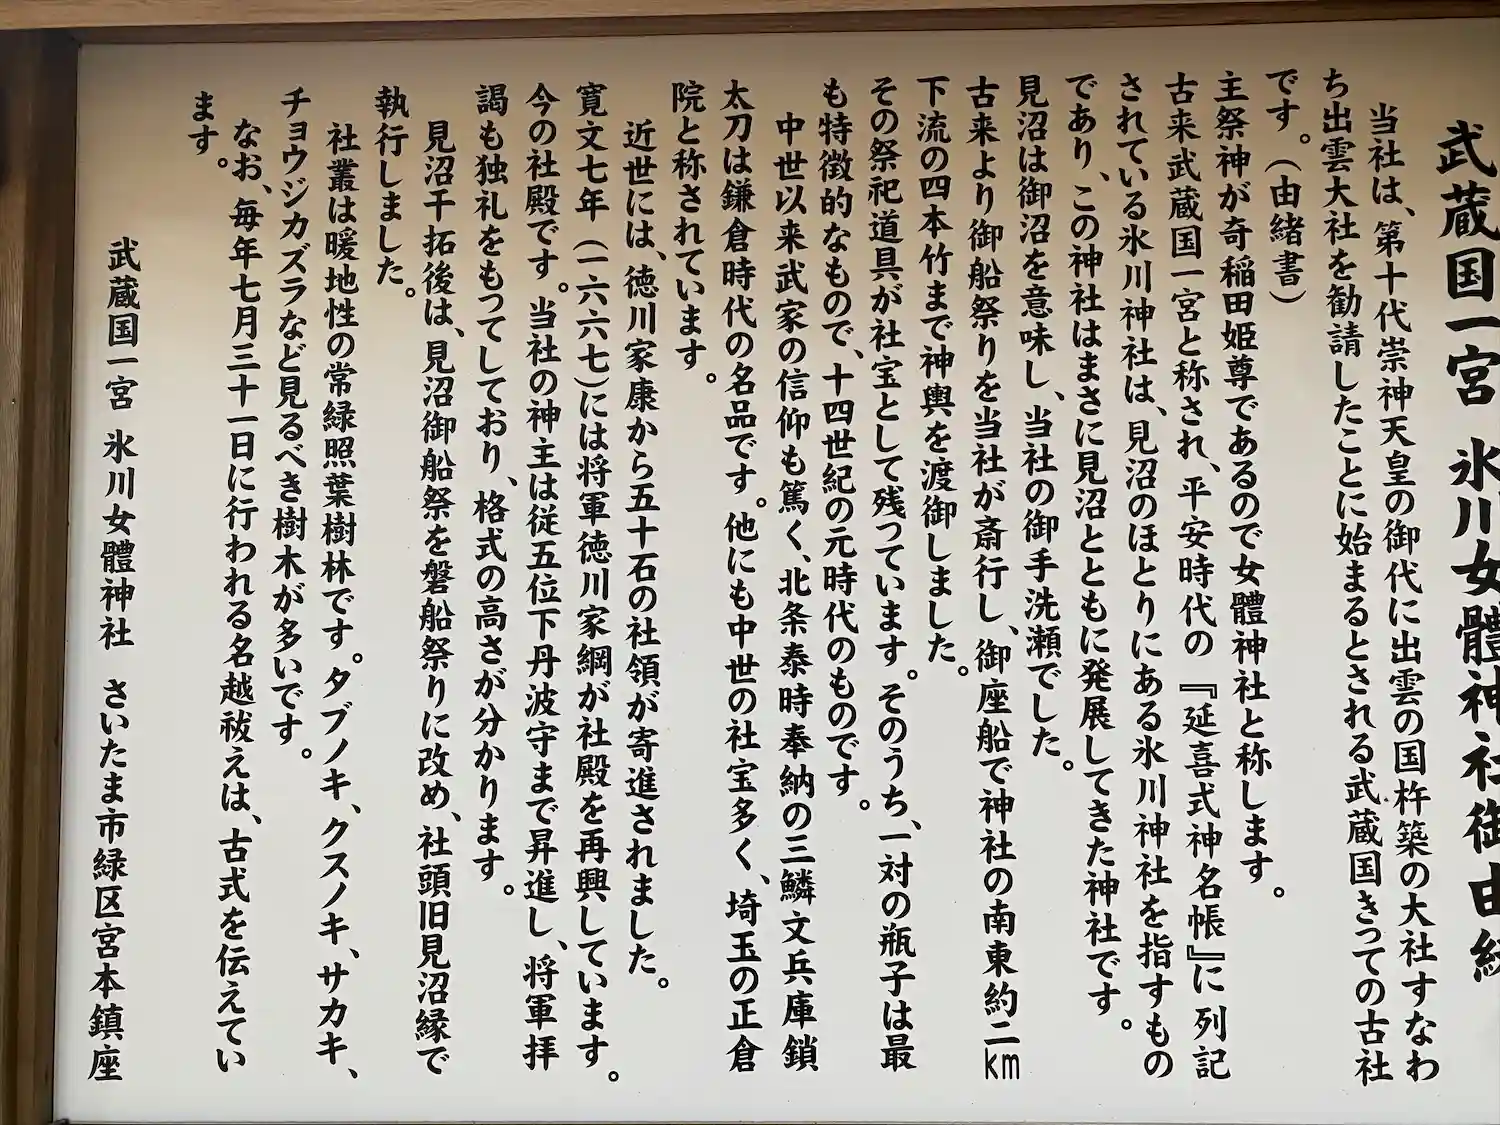 武蔵国一宮 氷川女體神社御由緒
当社は、第十代崇神天皇の御代に出雲の国杵築の大社すなわ
ち出雲大社を勧請したことに始まるとされる武蔵国きっての古社
です。（由緒書）
主祭神が奇稲田姫尊であるので女體神社と称します。
古来武蔵国一宮と称され、平安時代の『延喜式神名帳』に列記
されている氷川神社は、見沼のほとりにある氷川神社を指すもの
であり、この神社はまさに見沼とともに発展してきた神社です。
見沼は御沼を意味し、当社の御手洗瀬でした。
古来より御船祭りを当社が斎行し、御座船で神社の南東約二km
下流の四本竹まで神輿を渡御しました。
その祭祀道具が社宝として残っています。そのうち、一対の瓶子は最
も特徴的なもので、十四世紀の元時代のものです。
中世以来武家の信仰も篤く、北条泰時奉納の三鱗文兵庫鎖
太刀は鎌倉時代の名品です。他にも中世の社宝多く、埼玉の正倉
院と称されています。
近世には、徳川家康から五十石の社領が寄進されました。
寛文七年（一六六七）には将軍徳川家綱が社殿を再興しています。
今の社殿です。当社の神主は従五位下丹波守まで昇進し、将軍拝
謁も独礼をもってしており、格式の高さが分かります。
見沼干拓後は、見沼御船祭を磐船祭りに改め、社頭旧見沼縁で
執行しました。
社叢は暖地性の常緑照葉樹林です。タブノキ、クスノキ、サカキ、
チョウジカズラなど見るべき樹木が多いです。
なお、毎年七月三十一日に行われる名越祓えは、古式を伝えてい
ます。
武蔵国一宮 氷川女體神社 さいたま市緑区宮本鎮座